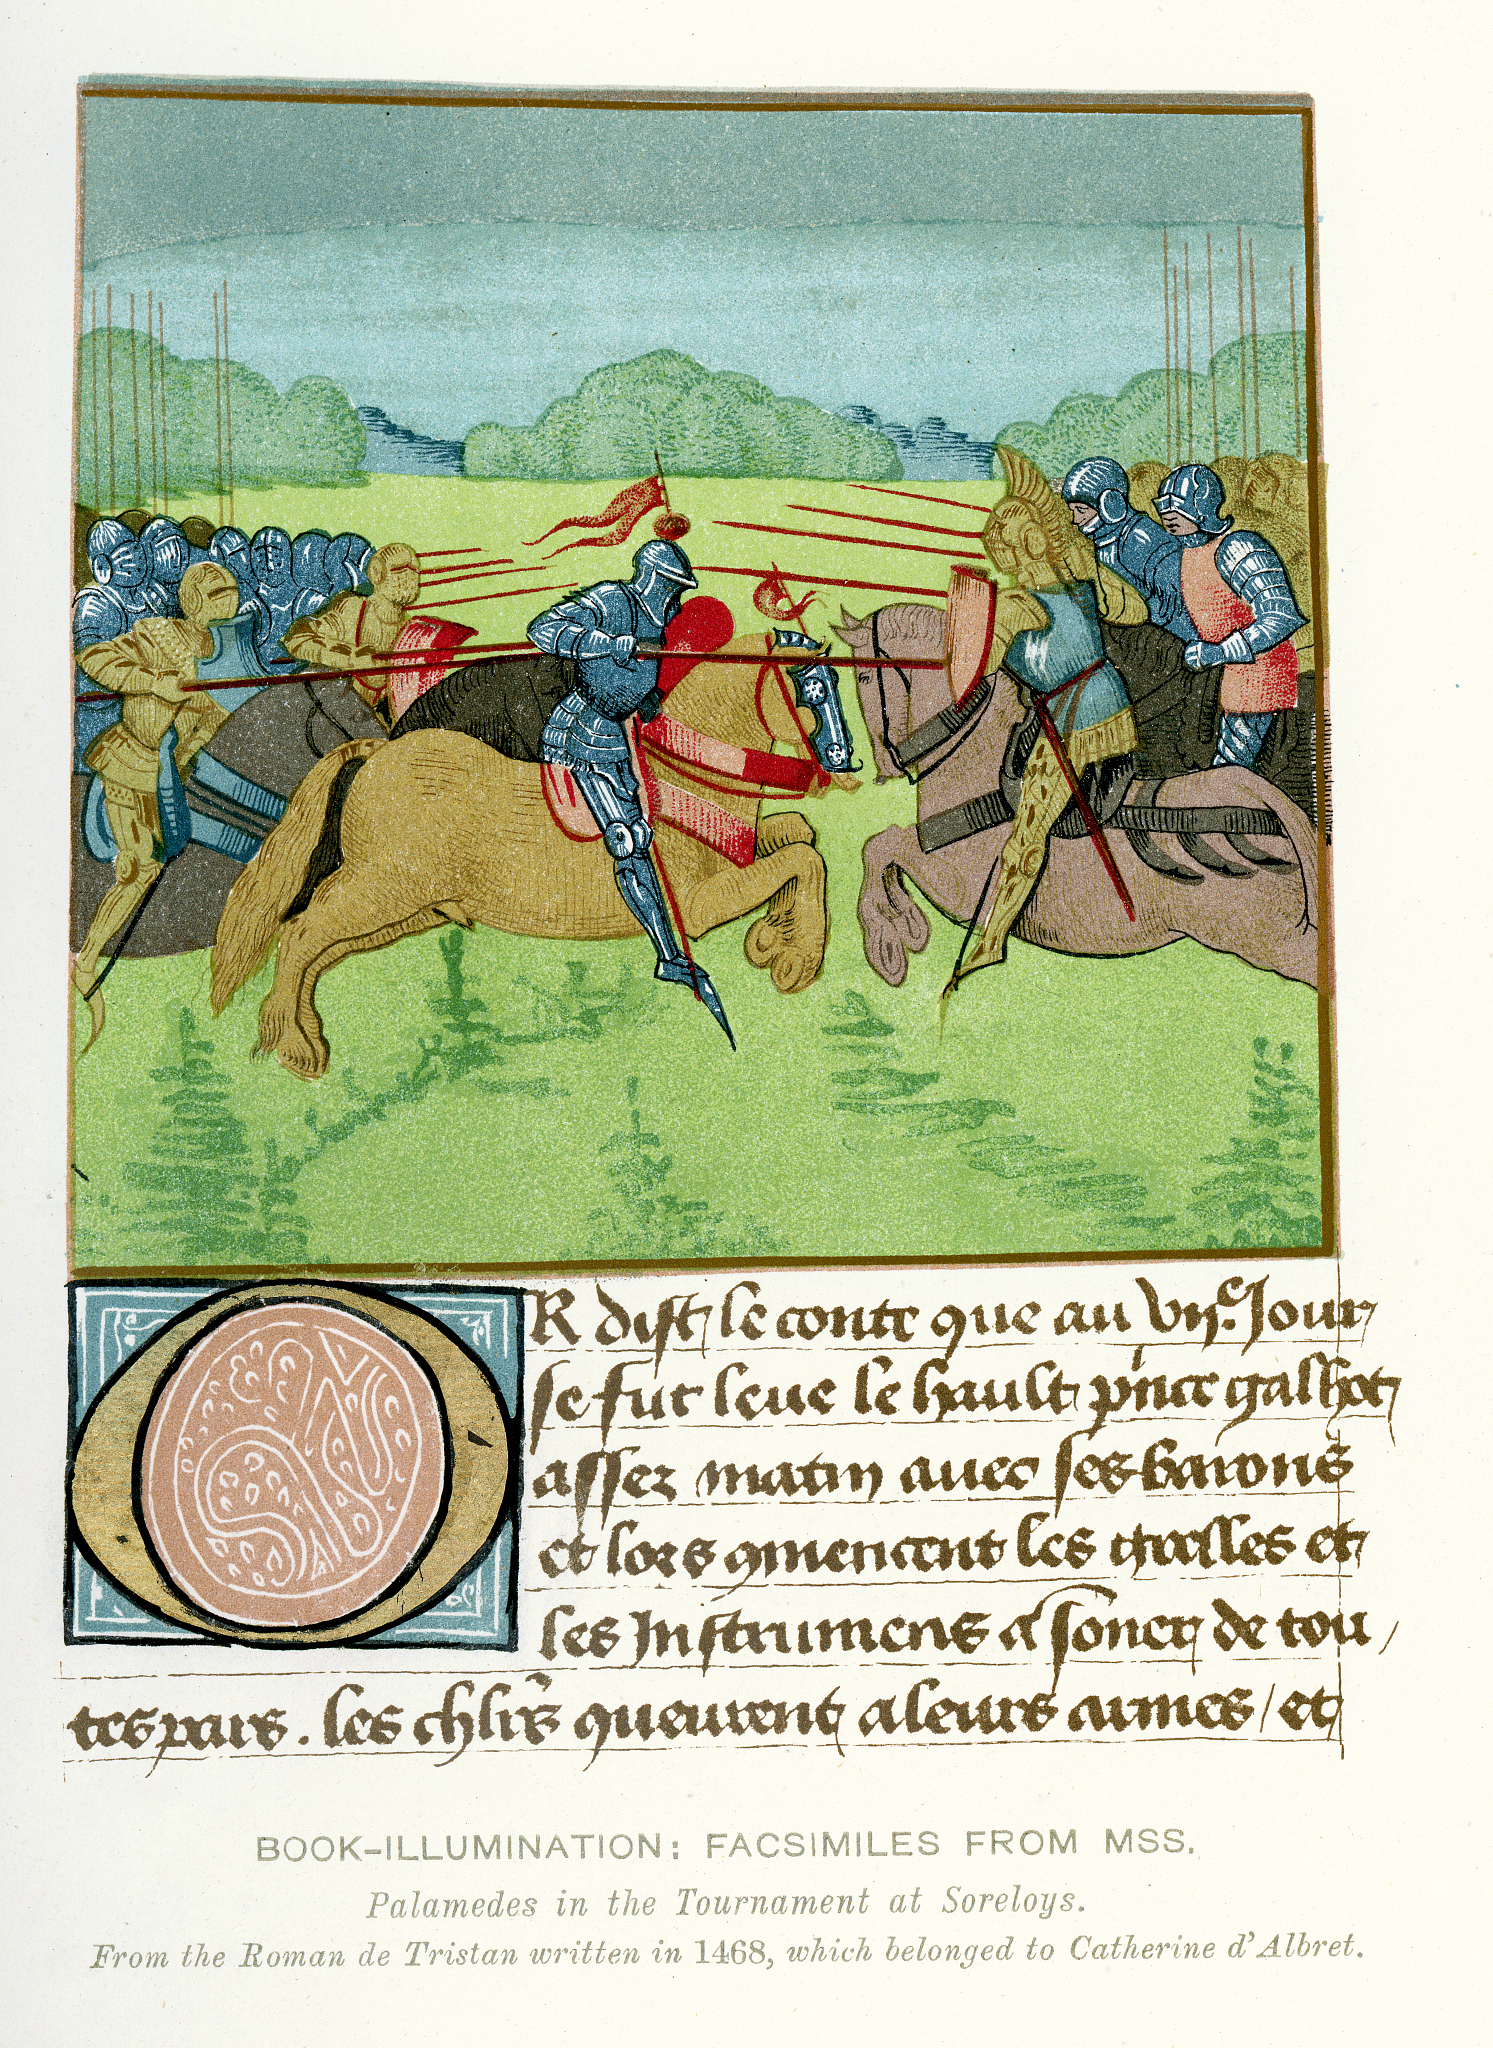 OR dist le conte que au vije. Jour
se fut leue le hault prince galhot
assez matin auec ses barons
et lors qmencent les graelles et
les Instrumens a soner de tou
tes pars. les chlrs queurent a leurs armes / et
BOOK-ILLUMINATION: FACSIMILES FROM MSS.
Palamedes in the Tournament at Soreloys.
From the Roman de Tristan written in 1468, which belonged to Catherine d'Albret.